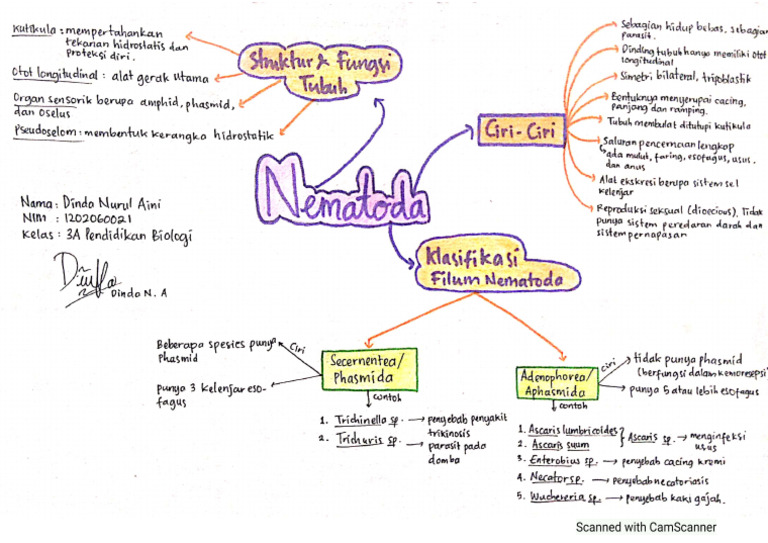 Kutikula : mempertahankan
tekanan hidrostatis dan
proteksi diri.
Otot longitudinal : alat gerak utama
Organ sensorik berupa amphid, phasmid,
dan oselus
Pseudoselom : membentuk kerangka hidrostatik
Struktur & Fungsi
Tubuh
Nematoda
Ciri - Ciri
Sebagian hidup bebas, sebagian
parasit.
Dinding tubuh hanya memiliki otot
longitudinal
Simetri bilateral, tripoblastik
Bentuknya menyerupai cacing,
panjang dan ramping.
Tubuh membulat ditutupi kutikula
Saluran pencernaan lengkap
ada mulut, faring, esofagus, usus,
dan anus
Alat ekskresi berupa sistem sel
kelenjar
Reproduksi seksual (dioecious), Tidak
punya sistem peredaran darah dan
sistem pernapasan
Nama : Dinda Nurul Aini
NIM : 1202060021
Kelas : 3A Pendidikan Biologi
Dinda N. A
Klasifikasi
Filum Nematoda
Secernentea/
Phasmida
Ciri
Beberapa spesies punya
Phasmid
punya 3 kelenjar eso-
fagus
contoh
1. Trichinella sp. → penyebab penyakit
trikinosis
2. Trichuris sp. → parasit pada
domba
Adenophorea/
Aphasmida
ciri
tidak punya phasmid
(berfungsi dalam kemoresepsi
punya 5 atau lebih esofagus
contoh
1. Ascaris lumbricoides
2. Ascaris suum
} Ascaris sp. → menginfeksi
usus
3. Enterobius sp. → penyebab cacing kremi
4. Necator sp. → penyebab necatoriasis
5. Wuchereria sp. → penyebab kaki gajah.
Scanned with CamScanner